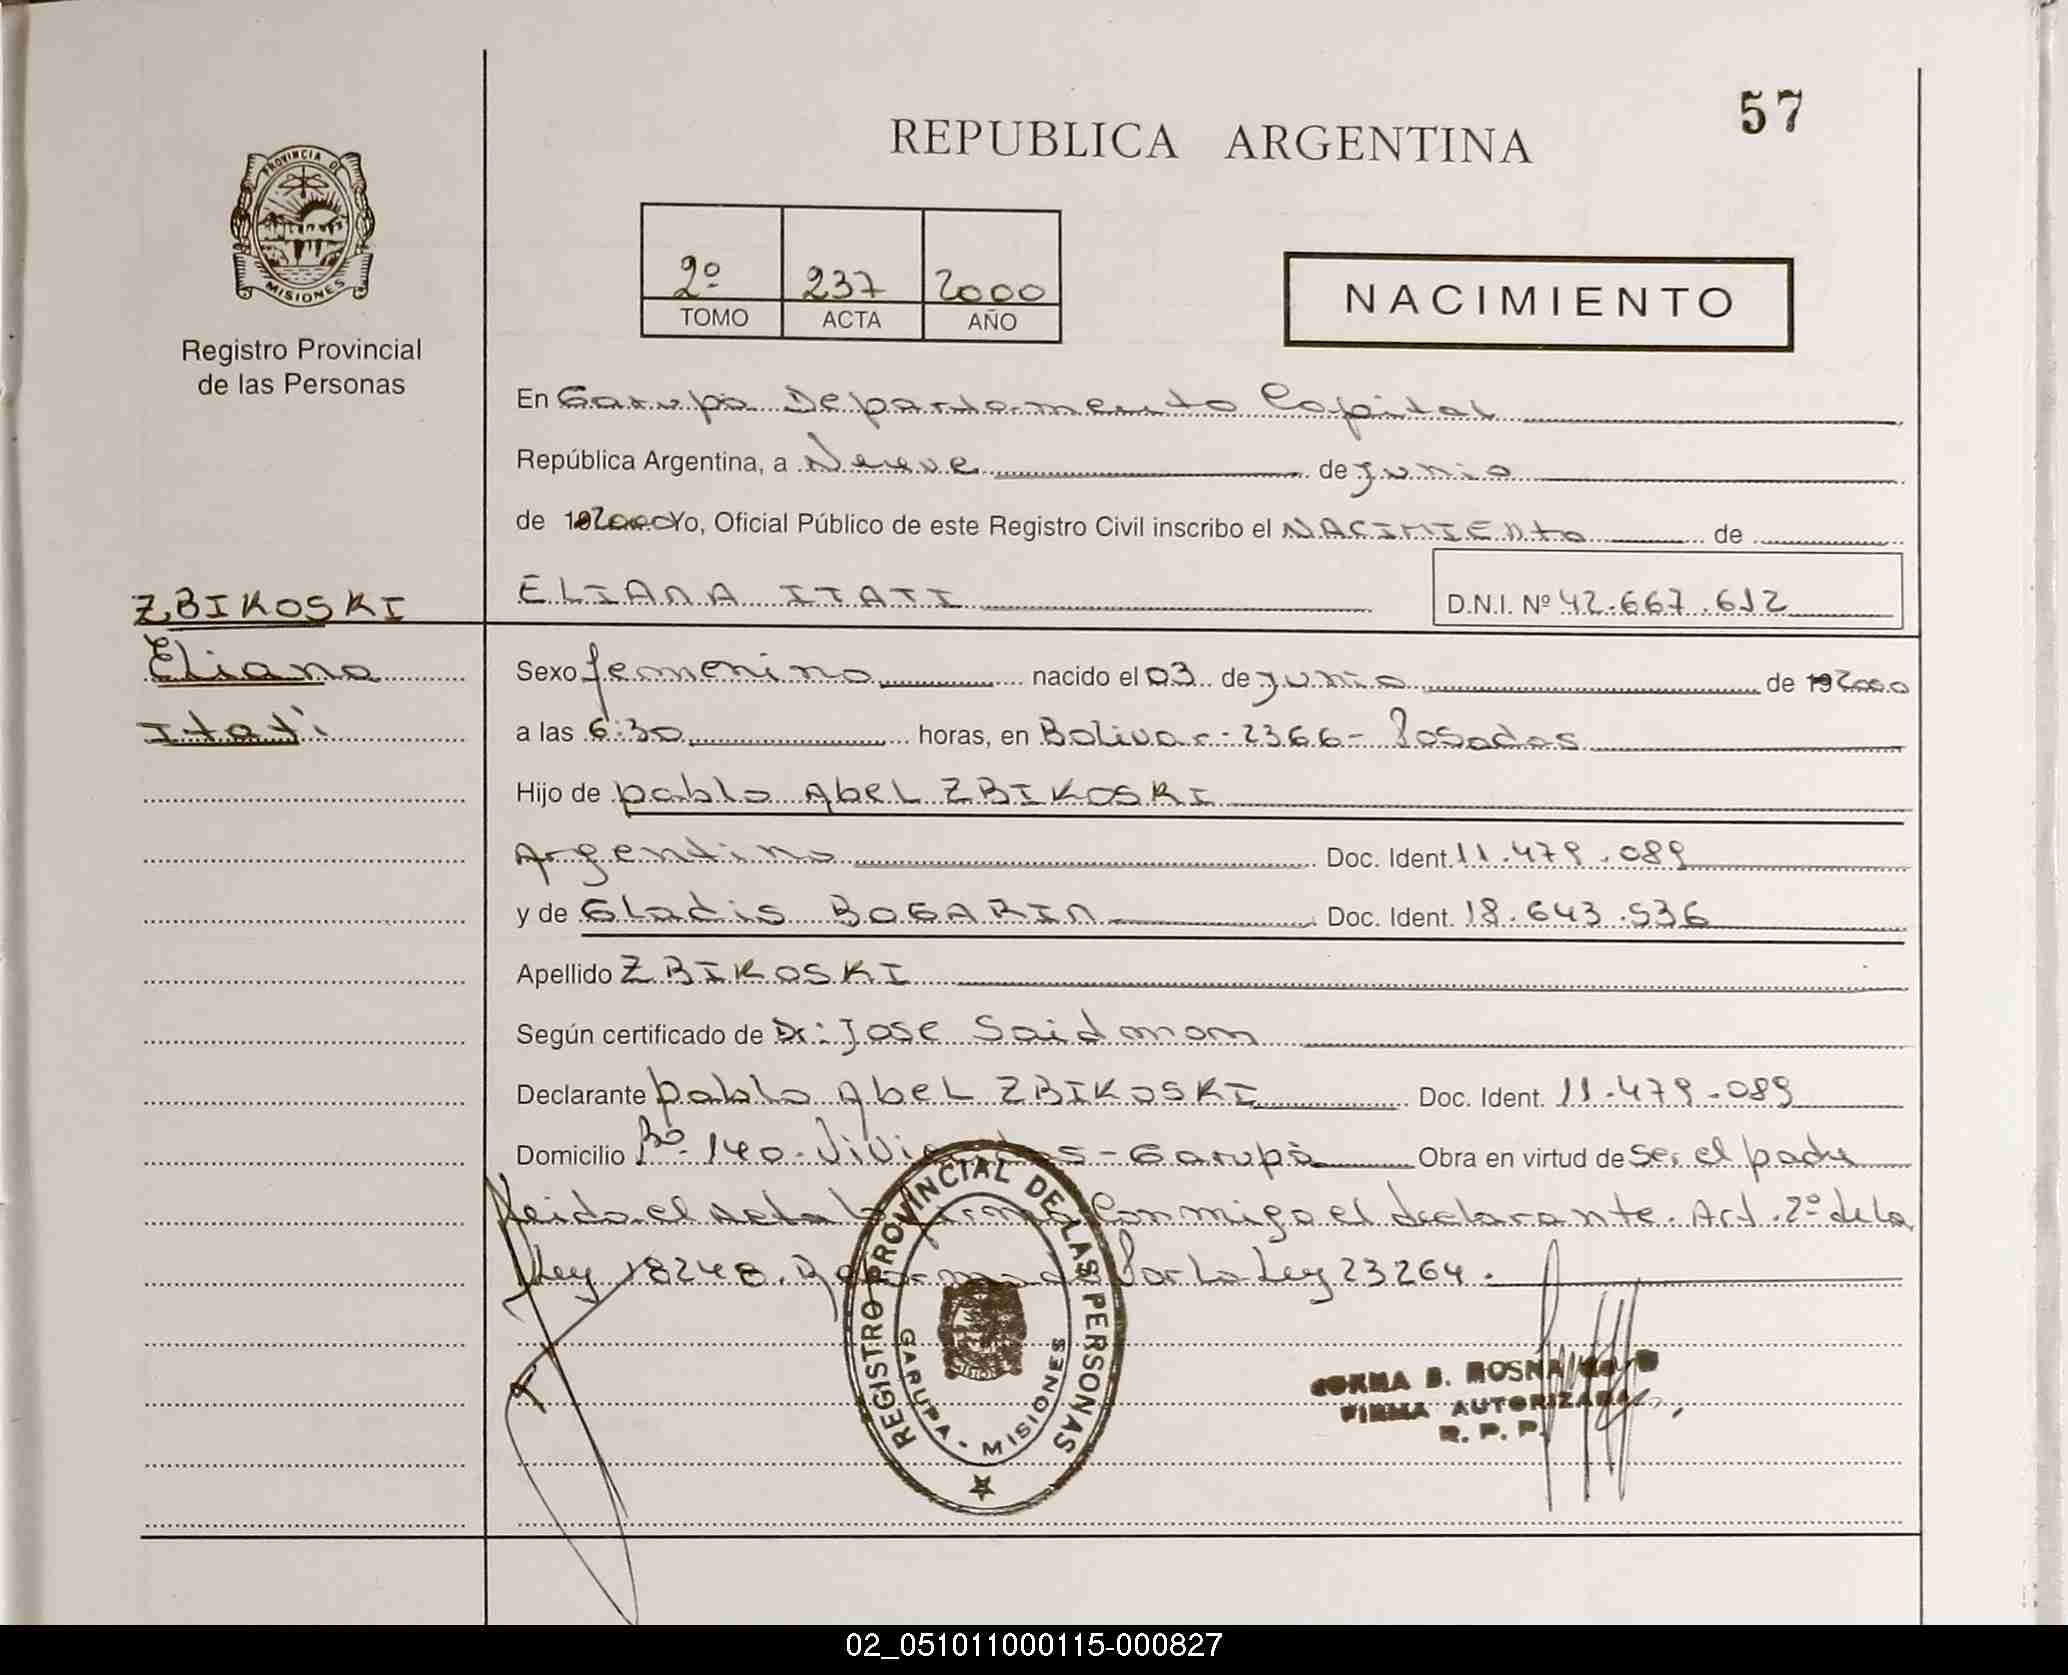 57
REPUBLICA ARGENTINA
PROVINCIA DE
MISIONES
Registro Provincial
de las Personas
2º 237 2000
TOMO ACTA AÑO
NACIMIENTO
En Garupà Departamento Capital
República Argentina, a Nueve de Junio
de 192000 Yo, Oficial Público de este Registro Civil inscribo el NACIMIENto de
ZBIKOSKI
ELIANA ITATI D.N.I. Nº 42.667.612
Eliana
Itatí
Sexo femenino nacido el 03 de Junio de 19 2000
a las 6:30 horas, en Bolivar-2366- Posadas
Hijo de pablo AbeL ZBIKOSKI
Argentino Doc. Ident. 11.479.089
y de GLadis BOGARIN Doc. Ident. 18.643.536
Apellido ZBIKOSKI
Según certificado de Dr: Jose Saidman
Declarante pablo AbeL ZBIKOSKI Doc. Ident. 11.479.089
Domicilio Bº. 140. Viviendas-Garupà Obra en virtud de Ser el padre
Leida el Acta la firma Conmigo el declarante. Art. 2º de la
Ley 18248. Reformada Por La Ley 23264.
REGISTRO PROVINCIAL DE LAS PERSONAS
GARUPA - MISIONES
B.
FIRMA AUTORIZADA
R. P. P.
02_051011000115-000827